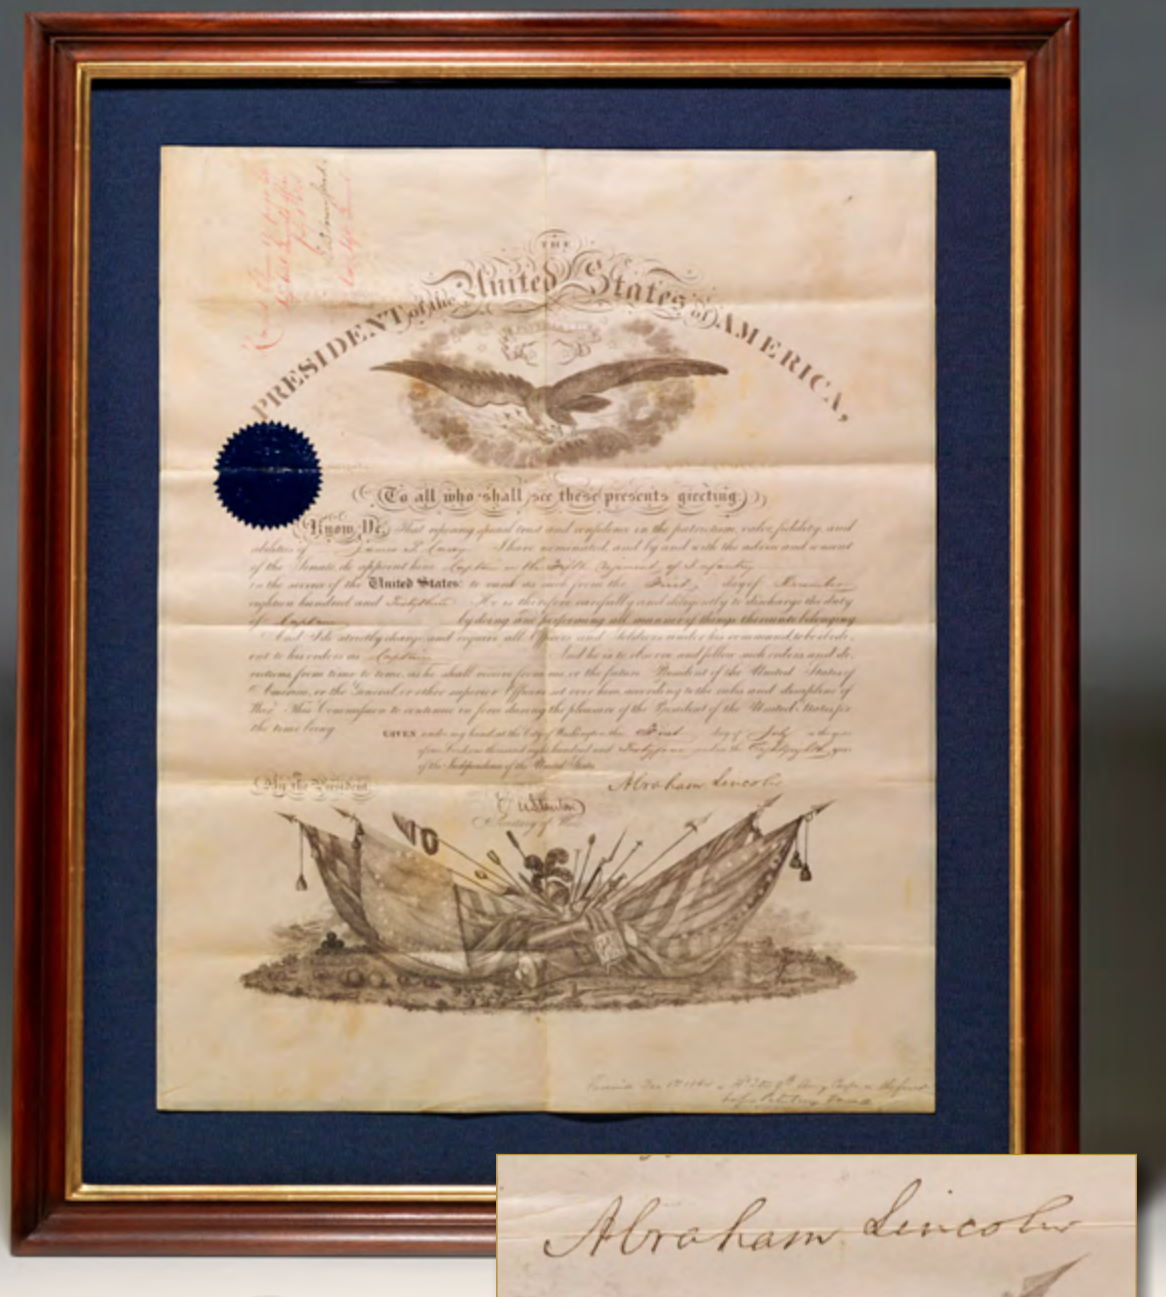 THE
PRESIDENT of the United States of AMERICA,
To all who shall see these presents greeting:
Know Ye, That reposing special trust and confidence in the patriotism, valor, fidelity, and
abilities of James I have nominated, and by and with the advice and consent
of the Senate, do appoint him Captain in the Regiment of Infantry
in the service of the United States: to rank as such from the First day of
eighteen hundred and He is therefore carefully and diligently to discharge the duty
of Captain by doing and performing all manner of things thereunto belonging
And I do strictly charge, and require all Officers and Soldiers under his command to be obedi-
ent to his orders as Captain And he is to observe and follow such orders, and di-
rections from time to time, as he shall receive from me, or the future President of the United States of
America, or the General or other superior Officers set over him, according to the rules and discipline of
War. This Commission to continue in force during the pleasure of the President of the United States, for
the time being.
GIVEN under my hand, at the City of Washington, this First day of July in the year
of our Lord one thousand eight hundred and and in the year
of the Independence of the United States.
By the President
Abraham Lincoln
Secretary of War.
Abraham Lincoln